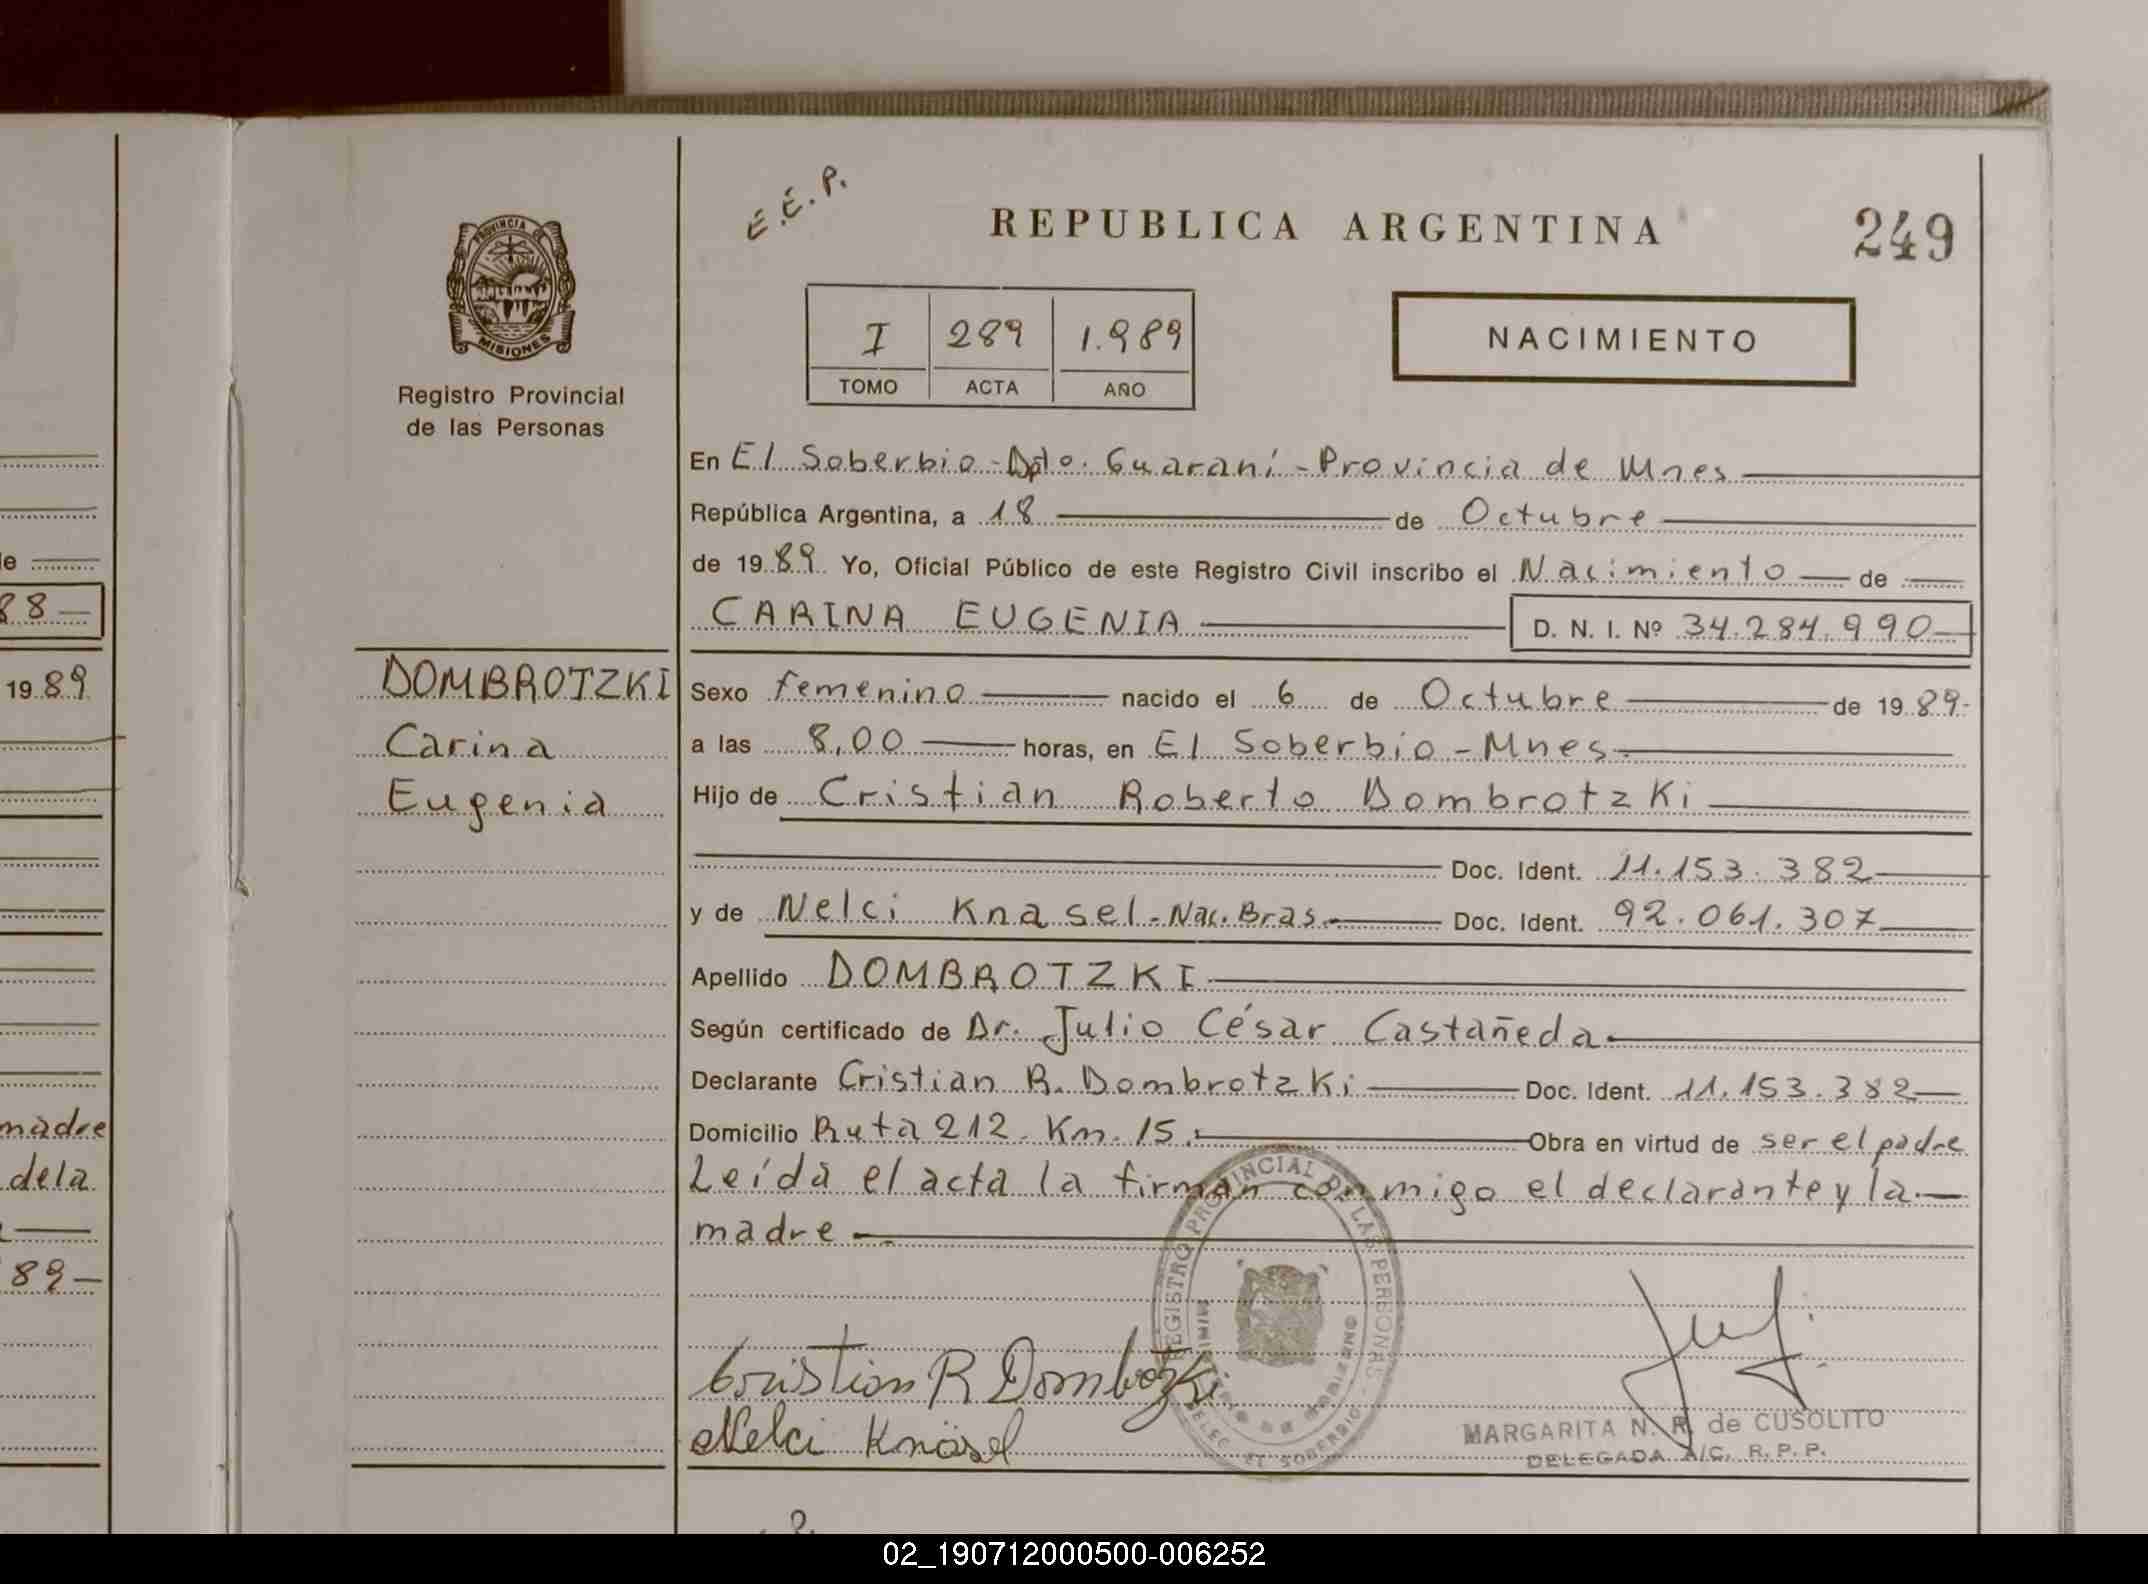 E.E.P.
REPUBLICA ARGENTINA
249
PROVINCIA DE
MISIONES
Registro Provincial
de las Personas
I 289 1.989
TOMO ACTA AÑO
NACIMIENTO
En El Soberbio - Dpto. Guaraní - Provincia de Mnes
República Argentina, a 18 de Octubre
de 1989 Yo, Oficial Público de este Registro Civil inscribo el Nacimiento de
CARINA EUGENIA D. N. I. Nº 34.284.990
DOMBROTZKI
Carina
Eugenia
Sexo femenino nacido el 6 de Octubre de 1989-
a las 8,00 horas, en El Soberbio - Mnes.
Hijo de Cristian Roberto Dombrotzki
Doc. Ident. 11.153.382
y de Nelci Knasel - Nac. Bras. Doc. Ident. 92.061.307
Apellido DOMBROTZKI
Según certificado de Dr. Julio César Castañeda
Declarante Cristian R. Dombrotzki Doc. Ident. 11.153.382
Domicilio Ruta 212. Km. 15. Obra en virtud de ser el padre
Leída el acta la firman conmigo el declarante y la
madre
REGISTRO PROVINCIAL DE LAS PERSONAS
MINISTERIO DE GOBIERNO
DELEG. EL SOBERBIO
Cristian R Dombrotzki
Nelci Knäsel
MARGARITA N. R. de CUSOLITO
DELEGADA A/C. R. P. P.
88
1989
madre
de la
89
02_190712000500-006252